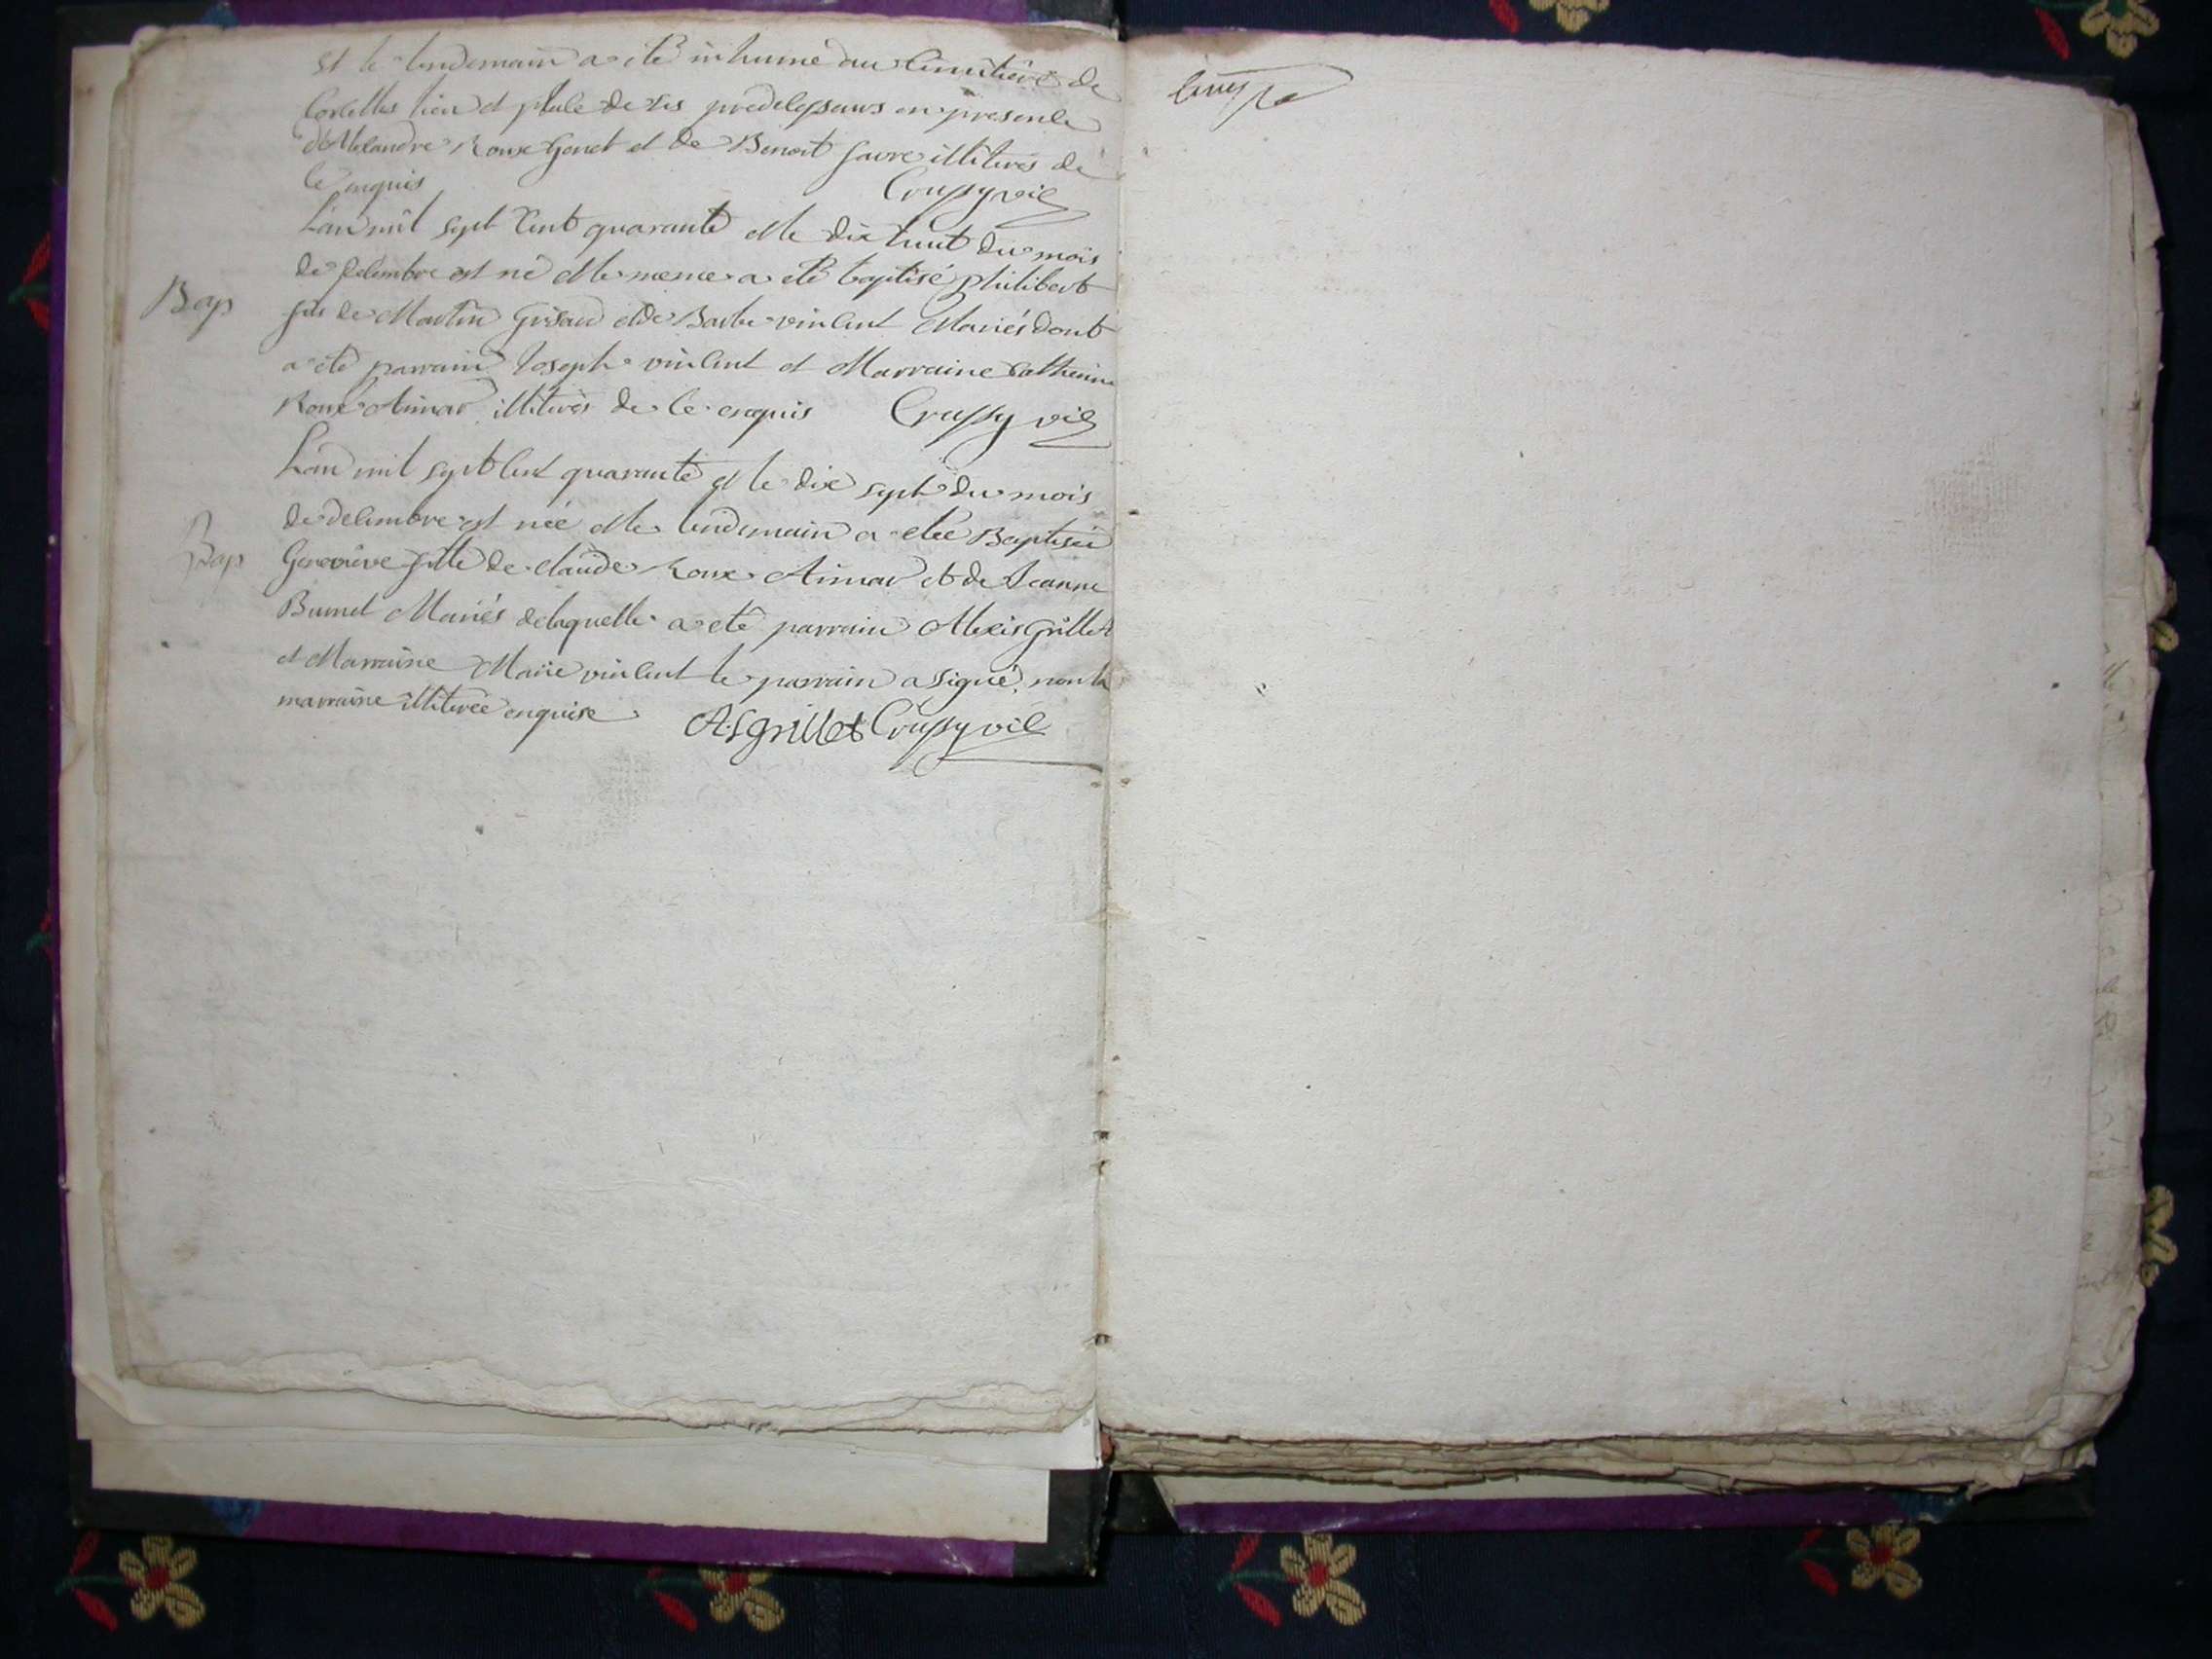 et le lendemain a été inhumé au cimitière de
Corcelles lieu et place de ses predecesseurs en presence
d'Alexandre Roux Genet et de Benoit favre illiterés de
ce enquis Crussy vic
L'an mil sept cent quarante et le dix huit du mois
de decembre est né et le meme a été baptisé philibert
Bap
fils de Martin Grisard et de Barbe vincent Mariés dont
a été parrain Joseph vincent et Marraine Catherine
Roux Aimar illiterés de ce enquis Crussy vic
L'an mil sept cent quarante et le dix sept du mois
de decembre est née et le lendemain a etée Baptisée
Bap
Genevieve fille de claude Roux Aimar et de Jeanne
Burnet Mariés delaquelle a eté parrain Alexis Grillet
et Marraine Marie vincent le parrain a signé, non la
marraine illiterée enquise A.Sgrillet Crussy vic